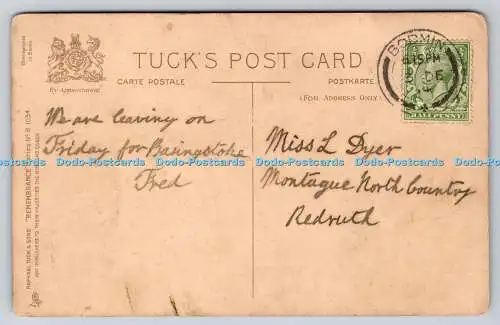 TUCK'S POST CARD
CARTE POSTALE
POSTKARTE
By Appointment
(FOR ADDRESS ONLY)
BODMIN
6.15PM
DE
HALFPENNY
We are leaving on
Friday for Basingstoke
Fred
Miss L Dyer
Montague North Country
Redruth
RAPHAEL TUCK & SONS' "REMEMBRANCE"
Dodo-Postcards Dodo-Postcards Dodo-Postcards Dodo-Postcards Dodo-Postcards Dodo-Postcards